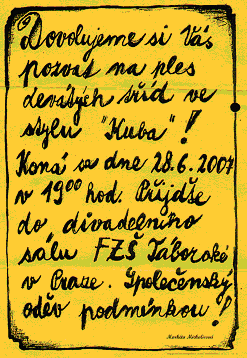 Dovolujeme si Vás
pozvat na ples
devátých tříd ve
stylu "Kuba"!
Koná se dne 28.6.2007
v 19⁰⁰ hod. Přijďte
do divadelního
sálu FZŠ Táborské
v Praze. Společenský
oděv podmínkou!
Markéta